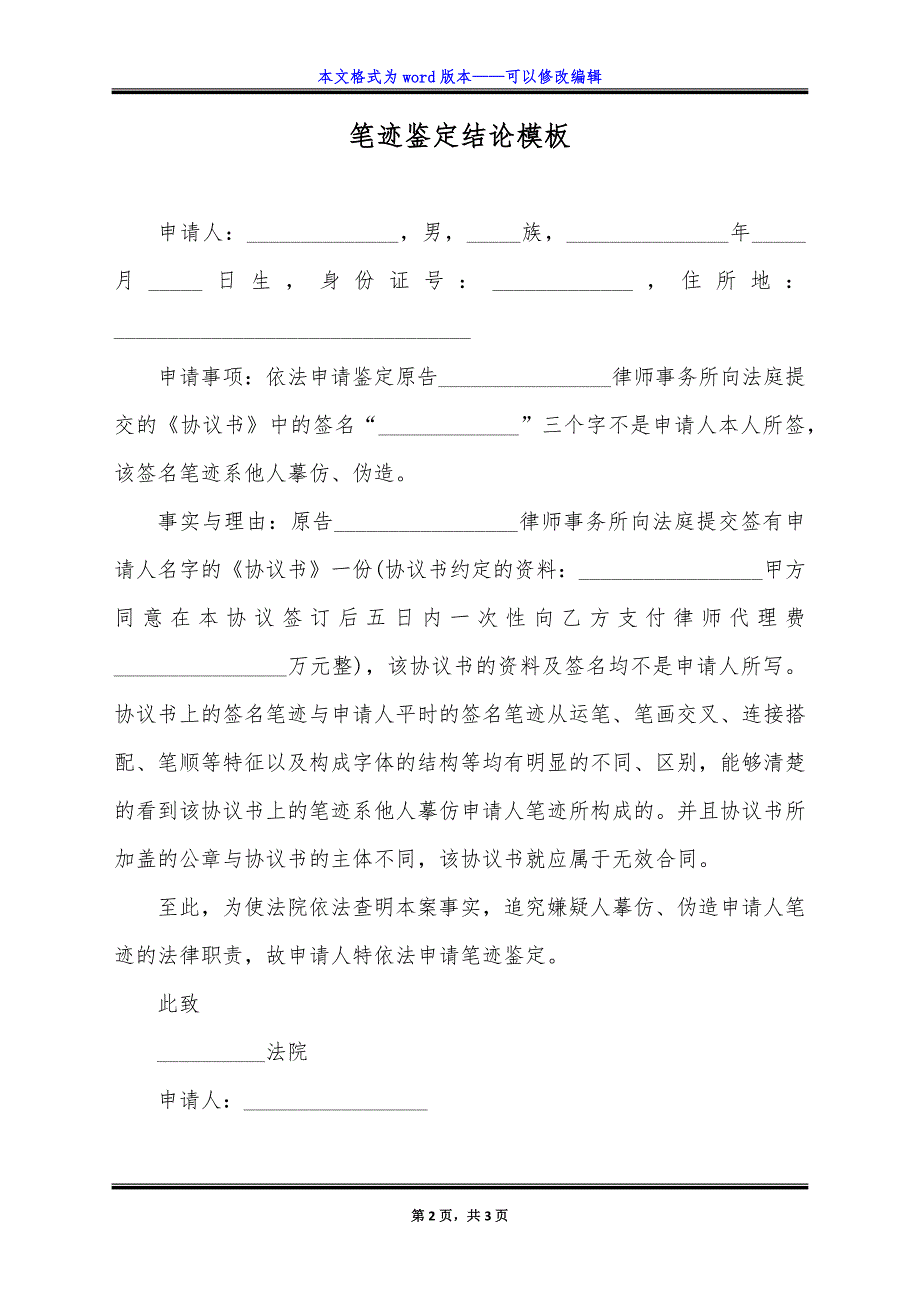 本文格式为 word 版本——可以修改编辑
笔迹鉴定结论模板
申请人：______________，男，_____族，_______________年_____
月_____日生，身份证号：_____________，住所地：
_________________________________
申请事项：依法申请鉴定原告________________律师事务所向法庭提
交的《协议书》中的签名“_____________”三个字不是申请人本人所签，
该签名笔迹系他人摹仿、伪造。
事实与理由：原告_________________律师事务所向法庭提交签有申
请人名字的《协议书》一份(协议书约定的资料：_________________甲方
同意在本协议签订后五日内一次性向乙方支付律师代理费
________________万元整)，该协议书的资料及签名均不是申请人所写。
协议书上的签名笔迹与申请人平时的签名笔迹从运笔、笔画交叉、连接搭
配、笔顺等特征以及构成字体的结构等均有明显的不同、区别，能够清楚
的看到该协议书上的笔迹系他人摹仿申请人笔迹所构成的。并且协议书所
加盖的公章与协议书的主体不同，该协议书就应属于无效合同。
至此，为使法院依法查明本案事实，追究嫌疑人摹仿、伪造申请人笔
迹的法律职责，故申请人特依法申请笔迹鉴定。
此致
__________法院
申请人：_________________
第 2 页，共 3 页